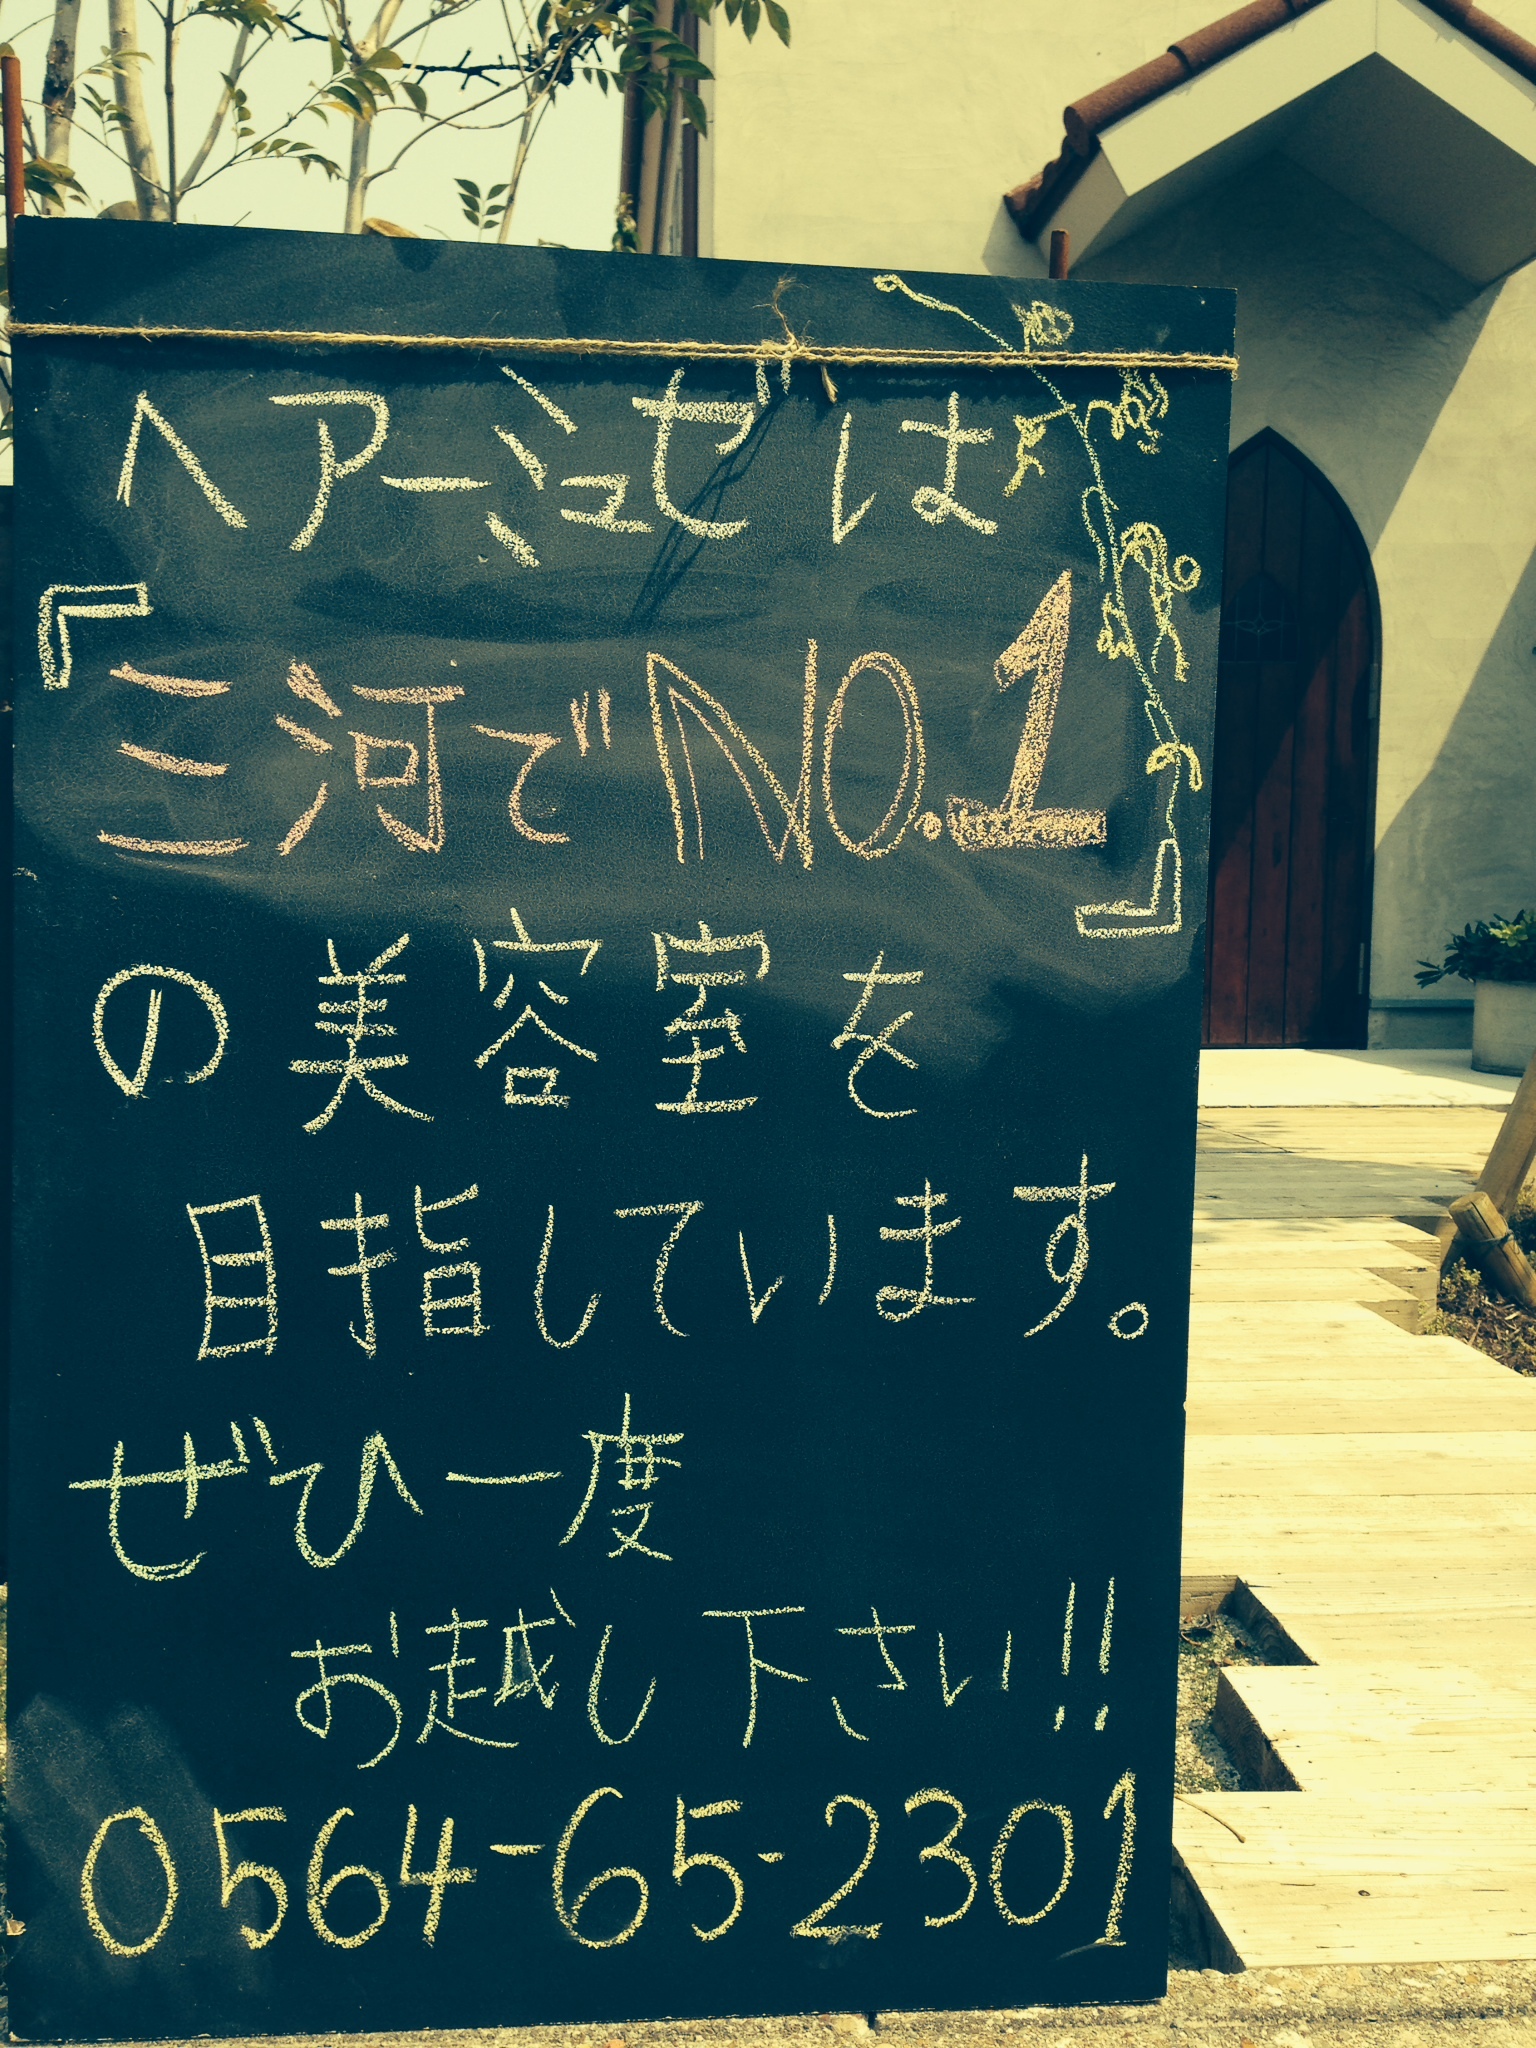 ヘアーミュゼは
『三河でNo.1』
の美容室を
目指しています。
ぜひ一度
お越し下さい!!
0564-65-2301